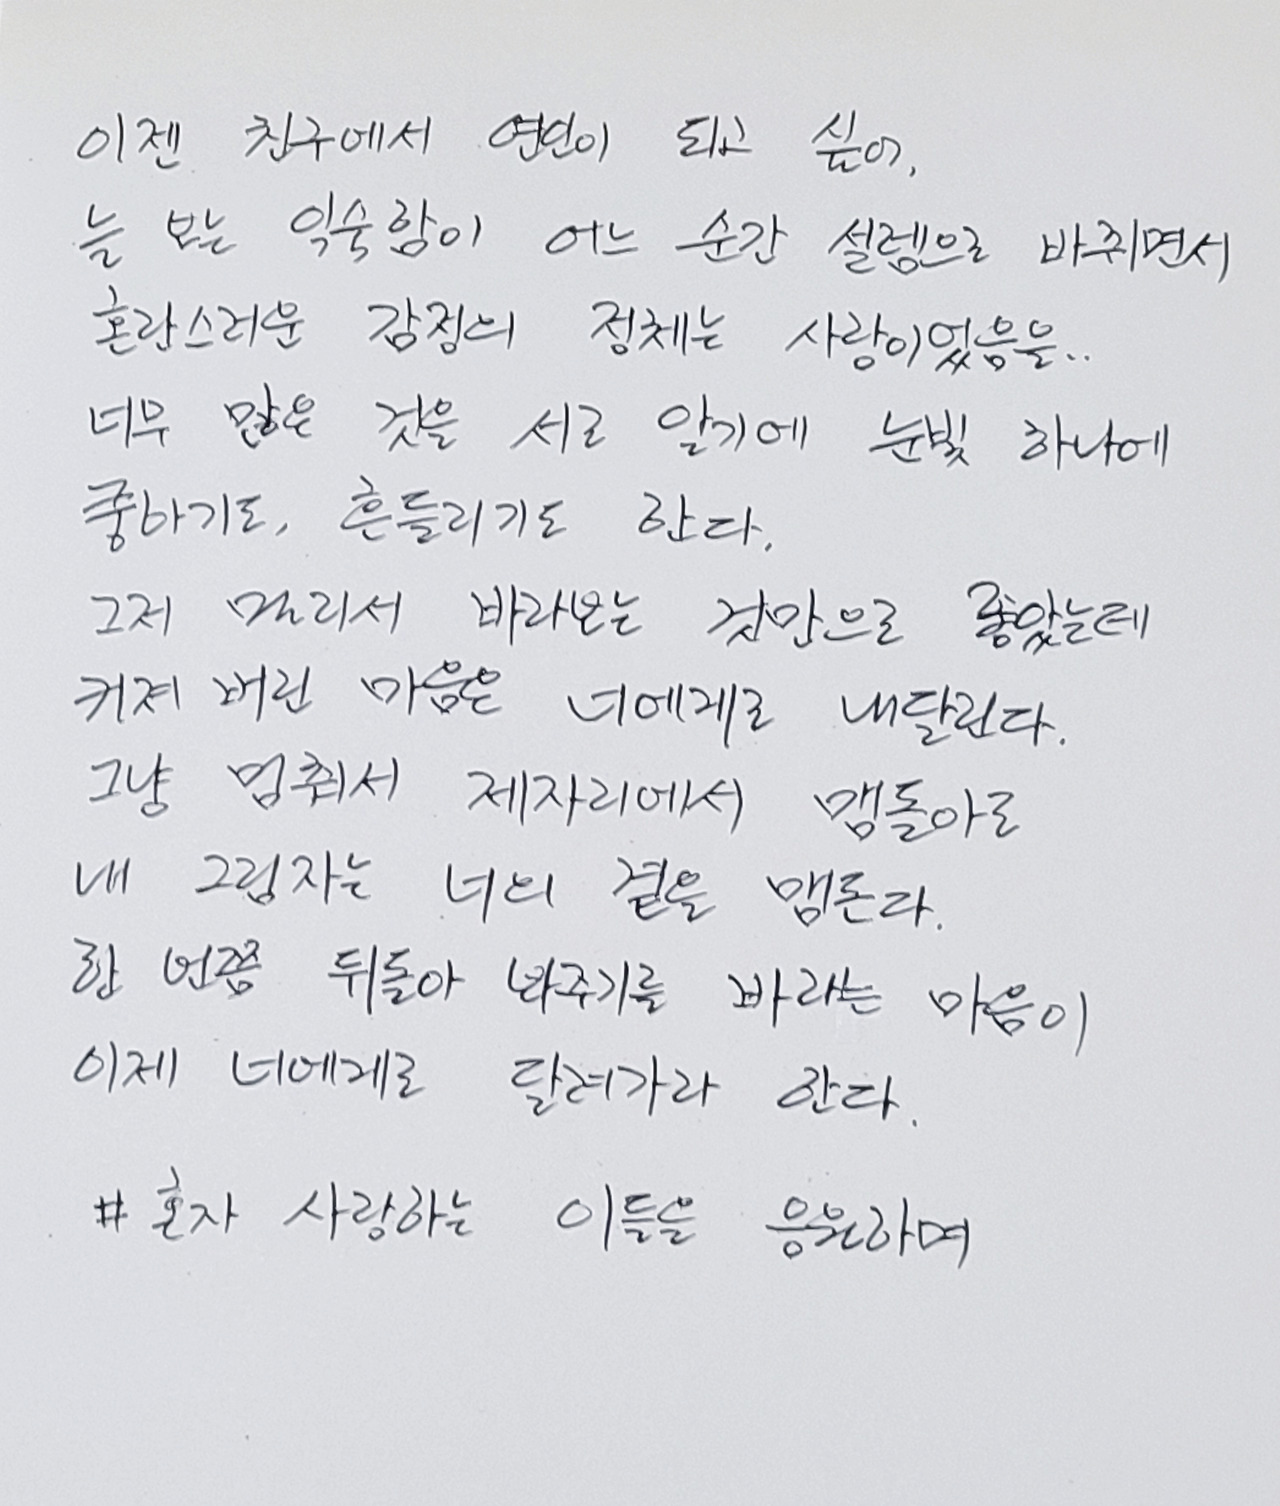 이젠 친구에서 연인이 되고 싶어,
늘 보는 익숙함이 어느 순간 설렘으로 바뀌면서
혼란스러운 감정의 정체는 사랑이었음을..
너무 많은 것을 서로 알기에 눈빛 하나에
쿵하기도, 흔들리기도 한다.
그저 멀리서 바라보는 것만으로 좋았는데
커져 버린 마음은 너에게로 내달린다.
그냥 멈춰서 제자리에서 맴돌아도
내 그림자는 너의 곁을 맴돈다.
한 번쯤 뒤돌아 봐주기를 바라는 마음이
이제 너에게로 달려가라 한다.
# 혼자 사랑하는 이들을 응원하며